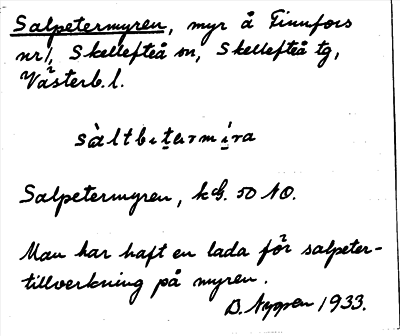 Salpetermyren, myr å Finnfors
nr 1, Skellefteå sn, Skellefteå tg,
Västerb. l.
sàltbetermíra
Salpetermyren, kbl. 50 NO.
Man har haft en lada för salpeter-
tillverkning på myren.
1933.